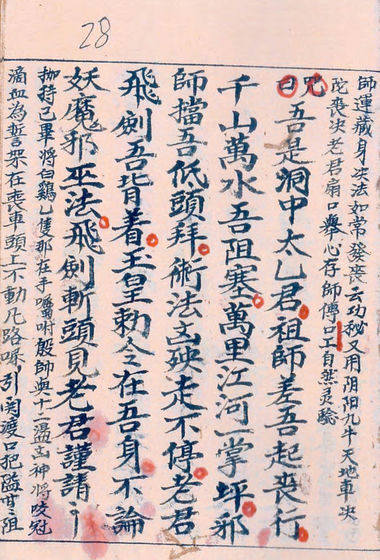 28
師運藏身决法如常發喪云功秘又用阴阳九牛天地車决
陀喪决老君扇口舉心存師傳口工自然灵驗
咒曰吾是洞中太乙君祖師差吾起喪行
千山萬水吾阻塞萬里江河一掌坪邪
師擋吾低頭拜術法凶殃走不停老君
飛劍吾背着玉皇勅令在吾身不論
妖魔邪巫法飛劍斬頭見老君謹請
勅持己畢將白鷄乚隻那在手囑咐殷師與十二瘟凶神將咬冠
滴血為誓架在喪車頭上不動凡路喙引関渡口把隘